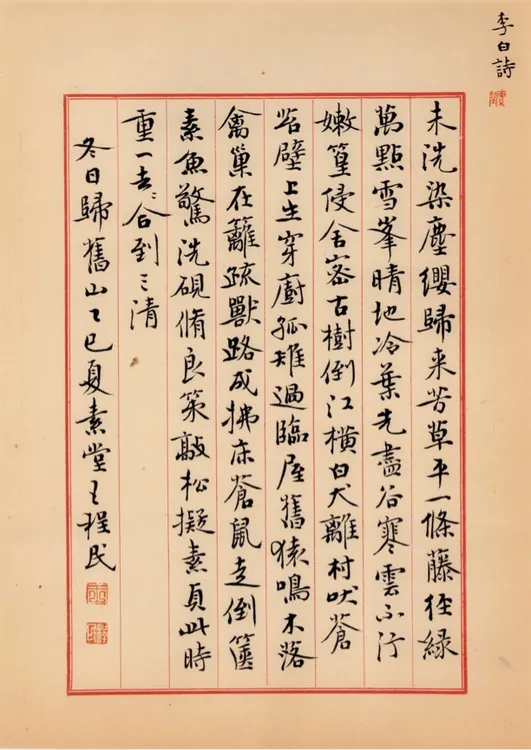 李白詩
未洗染塵纓歸来芳草平一條藤徑緑
萬點雪峯晴地冷葉先盡谷寒雲不行
嫩篁侵舍密古樹倒江橫白犬離村吠蒼
苔壁上生穿廚孤雉過臨屋舊猿鳴木落
禽巢在籬疏獸路成拂床蒼鼠走倒篋
素魚驚洗硯脩良策敲松擬素貞此時
重一去〻合到三清
冬日歸舊山乙巳夏素堂王程民